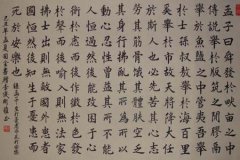 孟子曰舜發於畎畝之中
傅說舉於版築之間膠鬲
舉於魚鹽之中管夷吾舉
於士孫叔敖舉於海百里
奚舉於市故天將降大任
於斯人也必先苦其心志
勞其筋骨餓其體膚空乏
其身行拂亂其所為所以
動心忍性曾益其所不能
人恒過然後能改困於心
衡於慮而後作徵於色發
於聲而後喻入則無法家
拂士出則無敵國外患者
國恒亡然後知生於憂患
而死於安樂也